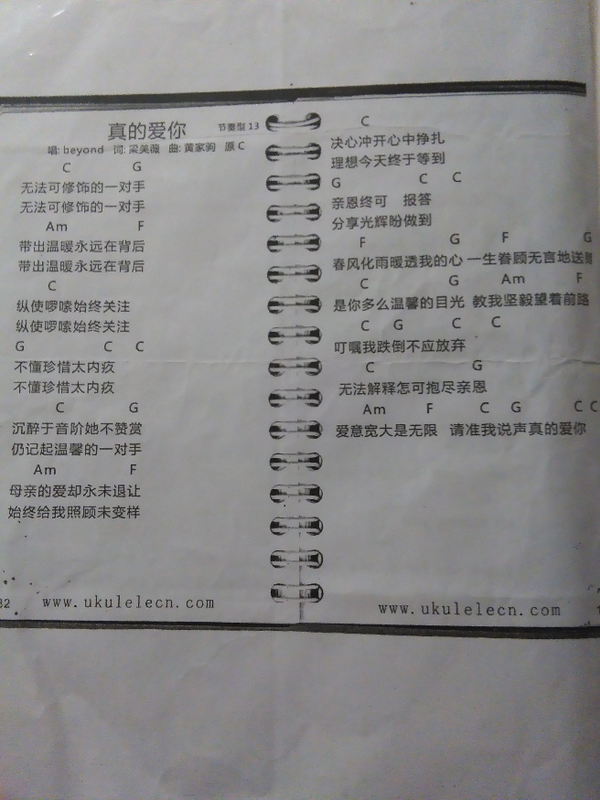 真的爱你 节奏型 13
唱: beyond 词: 梁美薇 曲: 黄家驹 原 C
C G
无法可修饰的一对手
无法可修饰的一对手
Am F
带出温暖永远在背后
带出温暖永远在背后
C
纵使啰嗦始终关注
纵使啰嗦始终关注
G C C
不懂珍惜太内疚
不懂珍惜太内疚
C G
沉醉于音阶她不赞赏
仍记起温馨的一对手
Am F
母亲的爱却永未退让
始终给我照顾未变样
32 www.ukulelecn.com
C
决心冲开心中挣扎
理想今天终于等到
G C C
亲恩终可 报答
分享光辉盼做到
F G F G
春风化雨暖透我的心 一生眷顾无言地送赠
C G Am F
是你多么温馨的目光 教我坚毅望着前路
C G C C
叮嘱我跌倒不应放弃
C G
无法解释怎可抱尽亲恩
Am F C G C C
爱意宽大是无限 请准我说声真的爱你
www.ukulelecn.com